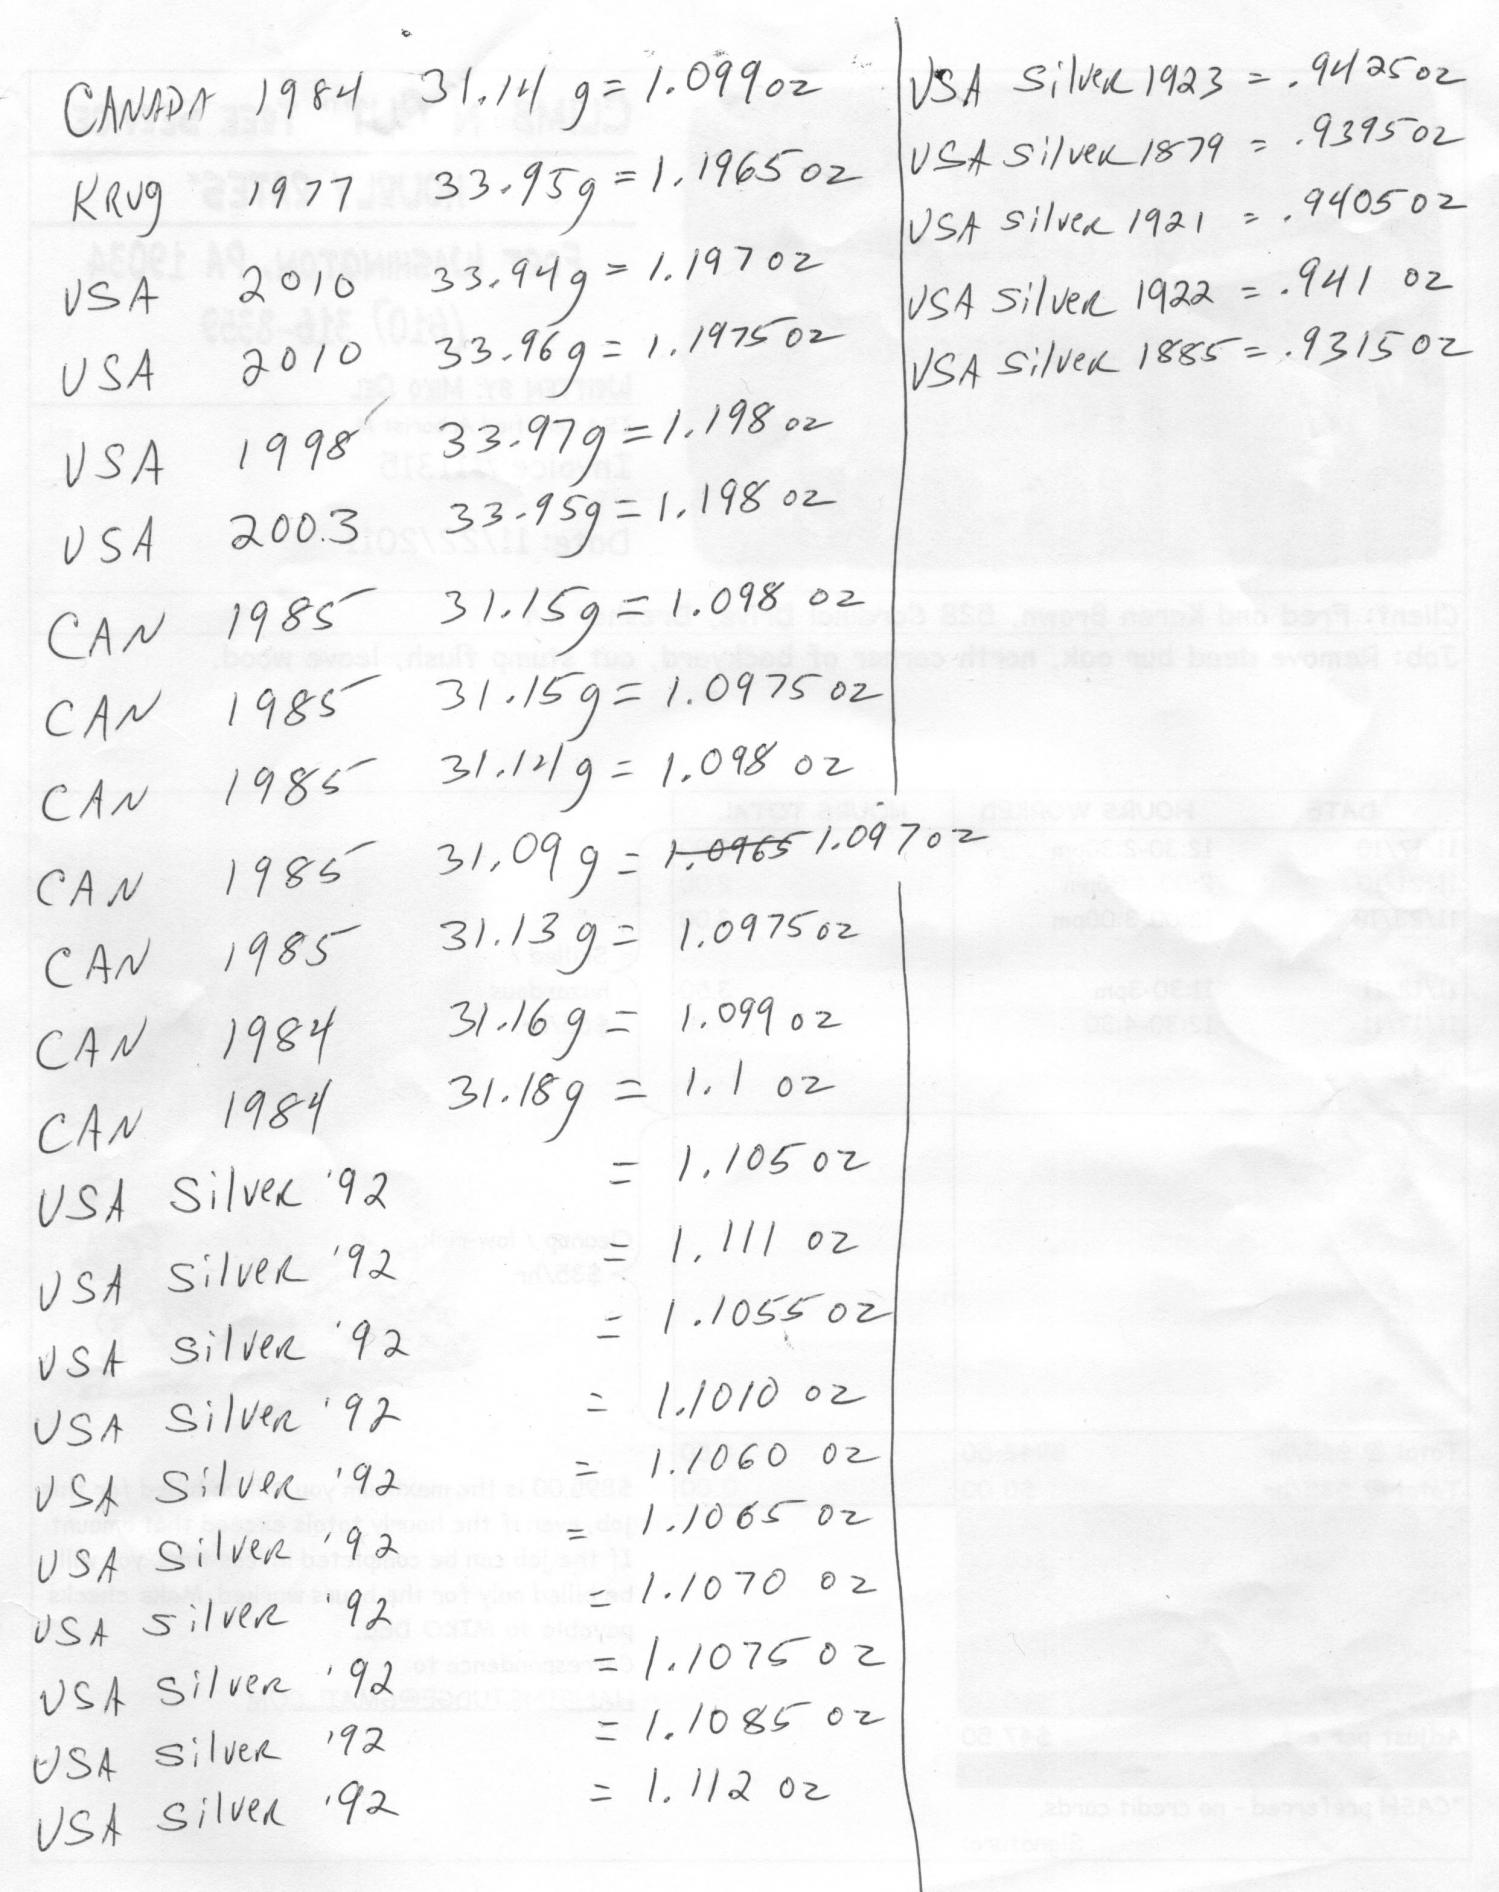 CANADA 1984 31.14 g = 1.099 oz
KRUG 1977 33.95g = 1.1965 oz
USA 2010 33.94g = 1.197 oz
USA 2010 33.96g = 1.1975 oz
USA 1998 33.97g = 1.198 oz
USA 2003 33.95g = 1.198 oz
CAN 1985 31.15g = 1.098 oz
CAN 1985 31.15g = 1.0975 oz
CAN 1985 31.14g = 1.098 oz
CAN 1985 31.09 g = 1.0965 1.097 oz
CAN 1985 31.13 g = 1.0975 oz
CAN 1984 31.16g = 1.099 oz
CAN 1984 31.18g = 1.1 oz
USA Silver '92 = 1.105 oz
USA Silver '92 = 1.111 oz
USA Silver '92 = 1.1055 oz
USA Silver '92 = 1.1010 oz
USA Silver '92 = 1.1060 oz
USA Silver '92 = 1.1065 oz
USA Silver '92 = 1.1070 oz
USA Silver '92 = 1.1075 oz
USA Silver '92 = 1.1085 oz
USA Silver '92 = 1.112 oz
USA Silver 1923 = .9425 oz
USA Silver 1879 = .9395 oz
USA Silver 1921 = .9405 oz
USA Silver 1922 = .941 oz
USA Silver 1885 = .9315 oz